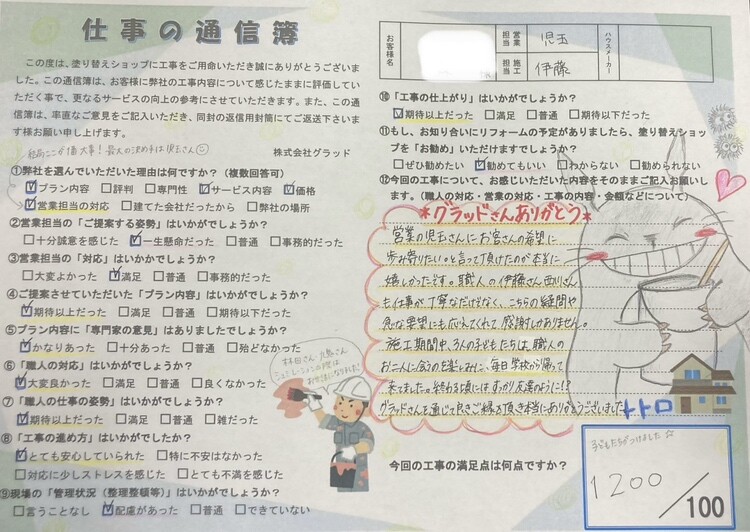 仕事の通信簿
この度は、塗り替えショップに工事をご用命いただき誠にありがとうございました。この通信簿は、お客様に弊社の工事内容について感じたままに評価していただく事で、更なるサービスの向上の参考にさせていただきます。また、この通信簿は、率直なご意見をご記入いただき、同封の返信用封筒にてご返送下さいます様お願い申し上げます。
株式会社グラッド
結局ここが1番大事!最大の決め手は児玉さん
①弊社を選んでいただいた理由は何ですか?(複数回答可)
☑プラン内容 □評判 □専門性 ☑サービス内容 ☑価格
☑営業担当の対応 □建てた会社だったから □弊社の場所
②営業担当の「ご提案する姿勢」はいかがでしょうか?
□十分誠意を感じた ☑一生懸命だった □普通 □事務的だった
③営業担当の「対応」はいかがでしょうか?
□大変よかった ☑満足 □普通 □事務的だった
④ご提案させていただいた「プラン内容」はいかがでしょうか?
☑期待以上だった □満足 □普通 □期待以下だった
⑤プラン内容に「専門家の意見」はありましたでしょうか?
☑かなりあった □十分あった □普通 □殆どなかった
⑥「職人の対応」はいかがでしょうか?
☑大変良かった □満足 □普通 □良くなかった
⑦「職人の仕事の姿勢」はいかがでしょうか?
☑期待以上だった □満足 □普通 □雑だった
⑧「工事の進め方」はいかがでしたか?
☑とても安心していられた □特に不安はなかった
□対応に少しストレスを感じた □とても不満を感じた
⑨現場の「管理状況(整理整頓等)」はいかがでしょうか?
□言うことなし ☑配慮があった □普通 □できていない
お客様名
営業担当 児玉
施工担当 伊藤
ハウスメーカー
⑩「工事の仕上がり」はいかがでしょうか?
☑期待以上だった □満足 □普通 □期待以下だった
⑪もし、お知り合いにリフォームの予定がありましたら、塗り替えショップを「お勧め」いただけますでしょうか?
□ぜひ勧めたい ☑勧めてもいい □わからない □勧められない
⑫今回の工事について、お感じいただいた内容をそのままご記入お願いします。(職人の対応・営業の対応・工事の内容・金額などについて)
*グラッドさんありがとう*
営業の児玉さんにお客さんの希望に
歩み寄りたい。と言って頂けたのが本当に
嬉しかったです。職人の伊藤さん西川さん
も仕事が丁寧なだけなく、こちらの疑問や
急な要望にも応えてくれて感謝しかありません。
施工期間中、3人の子どもたちは職人の
お二人に会うのを楽しみに、毎日学校から帰って
来てました。終わる頃にはすっかり友達のように!?
グラッドさんを通じて良きご縁を頂き本当にありがとうございました
トトロ
今回の工事の満足点は何点ですか?
子どもたちがつけました☆
1200/100